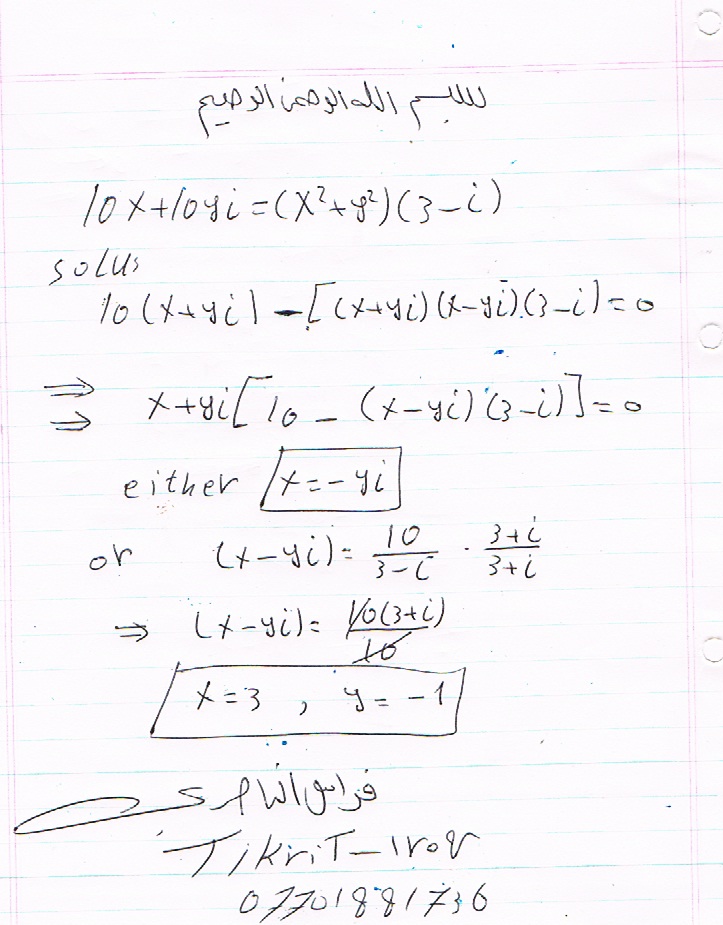 بسم الله الرحمن الرحيم
10x+10yi=(x²+y²)(3-i)
solus
10(x+yi)-[(x+yi)(x-yi).(3-i)]=0
⇒
⇒ x+yi[10-(x-yi)(3-i)]=0
either x=-yi
or (x-yi)= 10/3-i · 3+i/3+i
⇒ (x-yi)= 10(3+i)/10
x=3 , y=-1
فراس
TikriT-
07701881736